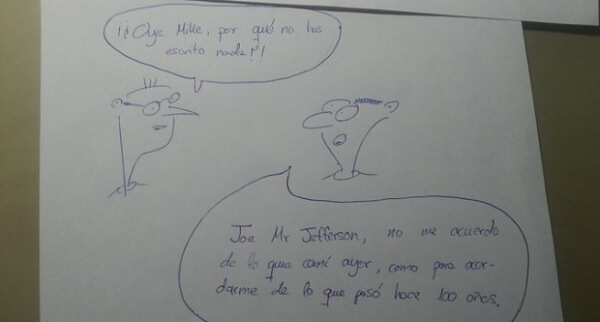 ¡¡Oye Mike, por qué no has
escrito nada!!
Joe Mr Jefferson, no me acuerdo
de lo que comí ayer, como para acor-
darme de lo que pasó hace 100 años.